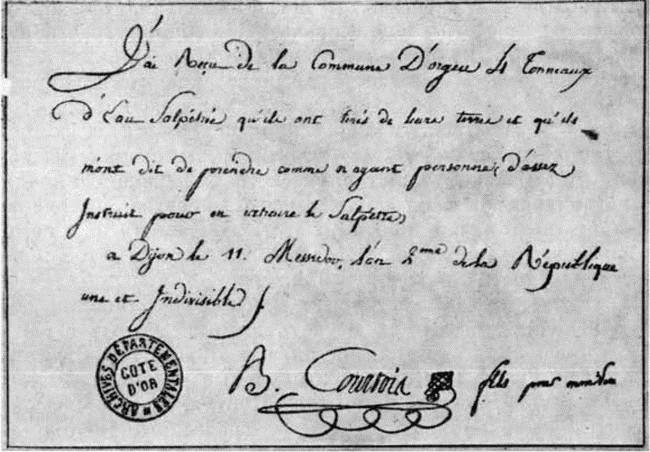 J'ai Reçu de la Commune D'orgeu 4 Tonneaux
d'Eau Salpétrée qu'ils ont tirés de leurs terres et qu'ils
m'ont dit de prendre comme n'ayant personne d'assez
Instruit pour en extraire le Salpétre,
a Dijon le 11. Messidor, l'an 2eme de la République
une et Indivisible
B. Courtois fils pour mon
ARCHIVES DÉPARTEMENTALES
COTE
D'OR